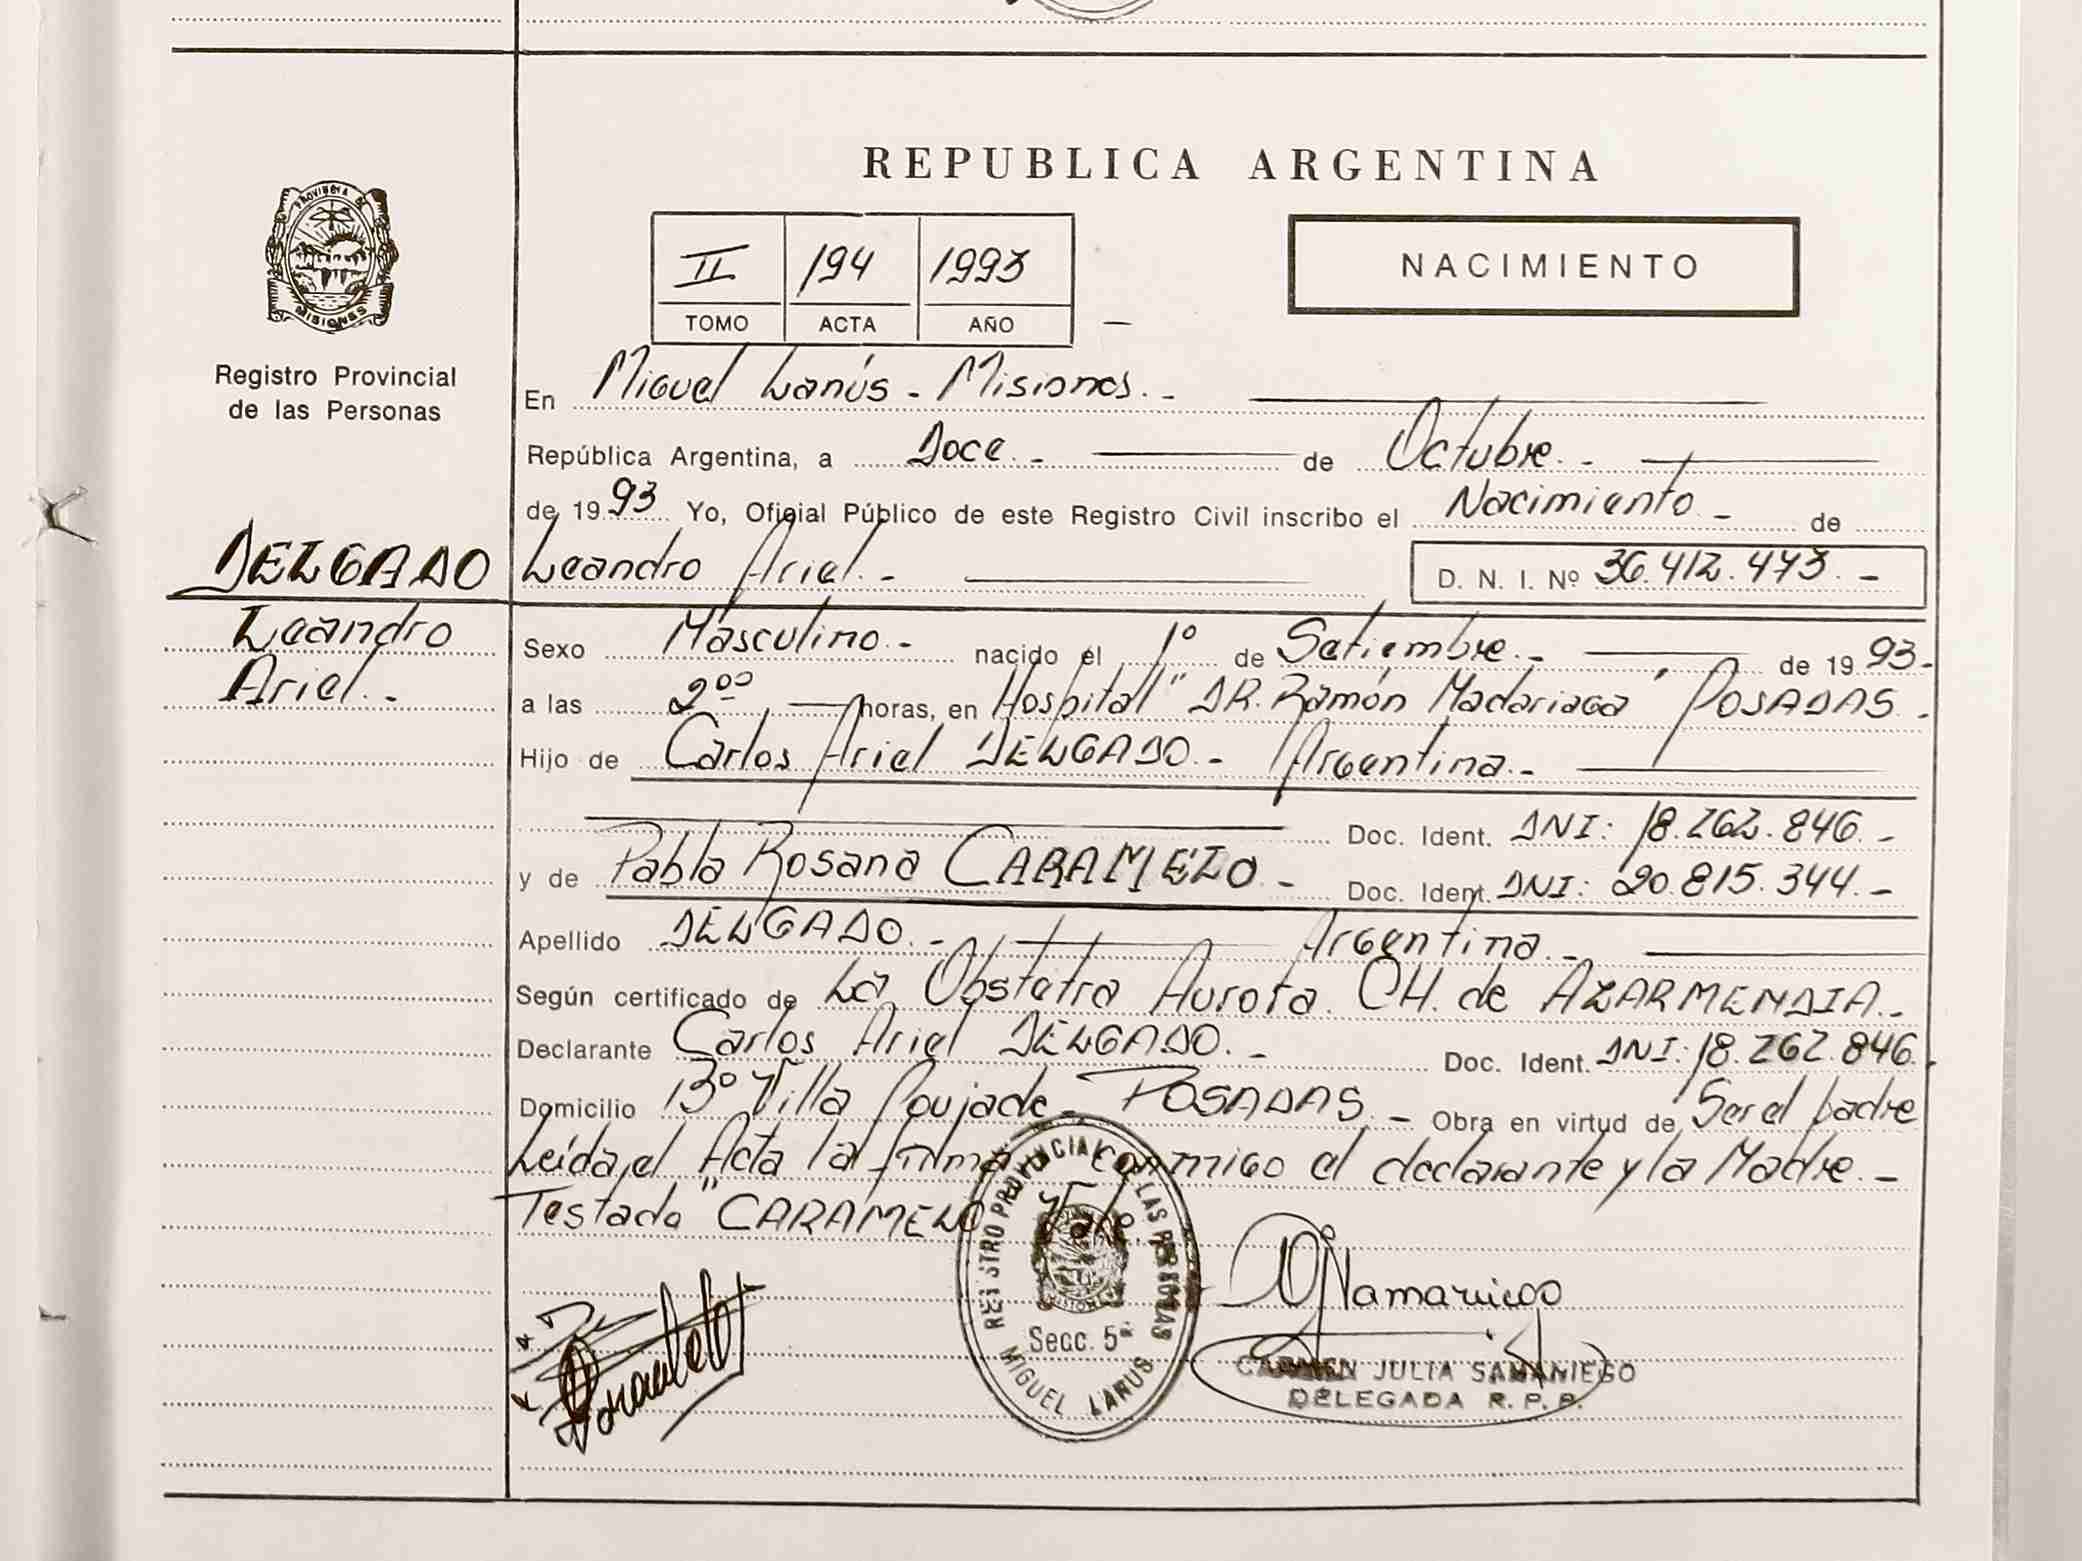 PROVINCIA DE
MISIONES
Registro Provincial
de las Personas
DELGADO
Leandro
Ariel.-
REPUBLICA ARGENTINA
II 194 1993
TOMO ACTA AÑO
NACIMIENTO
En Miguel Lanús - Misiones.-
República Argentina, a Doce.- de Octubre.-
de 1993 Yo, Oficial Público de este Registro Civil inscribo el Nacimiento - de
Leandro Ariel.- D. N. I. Nº 36.412.473.-
Sexo Masculino.- nacido el 1º de Setiembre.- de 1993.-
a las 2⁰⁰ horas, en Hospital "DR. Ramón Madariaga" POSADAS.-
Hijo de Carlos Ariel DELGADO.- Argentina.-
Doc. Ident. DNI: 18.262.846.-
y de Pabla Rosana CARAMELO.- Doc. Ident. DNI: 20.815.344.-
Apellido DELGADO.- Argentina.-
Según certificado de La Obstetra Aurora CH. de AZARMENDIA.-
Declarante Carlos Ariel DELGADO.- Doc. Ident. DNI: 18.262.846.-
Domicilio Bº Villa Poujade - POSADAS.- Obra en virtud de Ser el padre
Leída el Acta la firma conmigo el declarante y la Madre.-
Testado "CARAMELO" Vale
REGISTRO PROVINCIAL DE LAS PERSONAS
MISIONES
Secc. 5ª
MIGUEL LANUS
CARMEN JULIA SAMANIEGO
DELEGADA R. P. P.